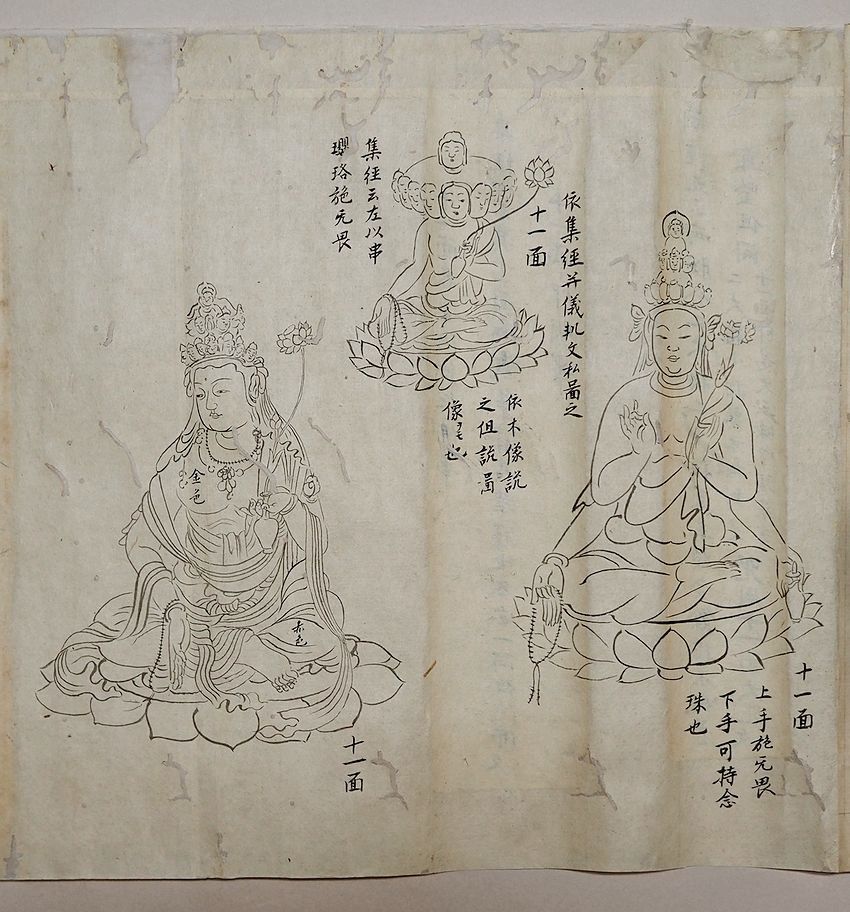 十一面
上手施无畏
下手可持念
珠也
依集經并儀軌文私啚之
十一面
依木像説
之但説啚
像也
集經云左以串
瓔珞施无畏
十一面
金色
赤色